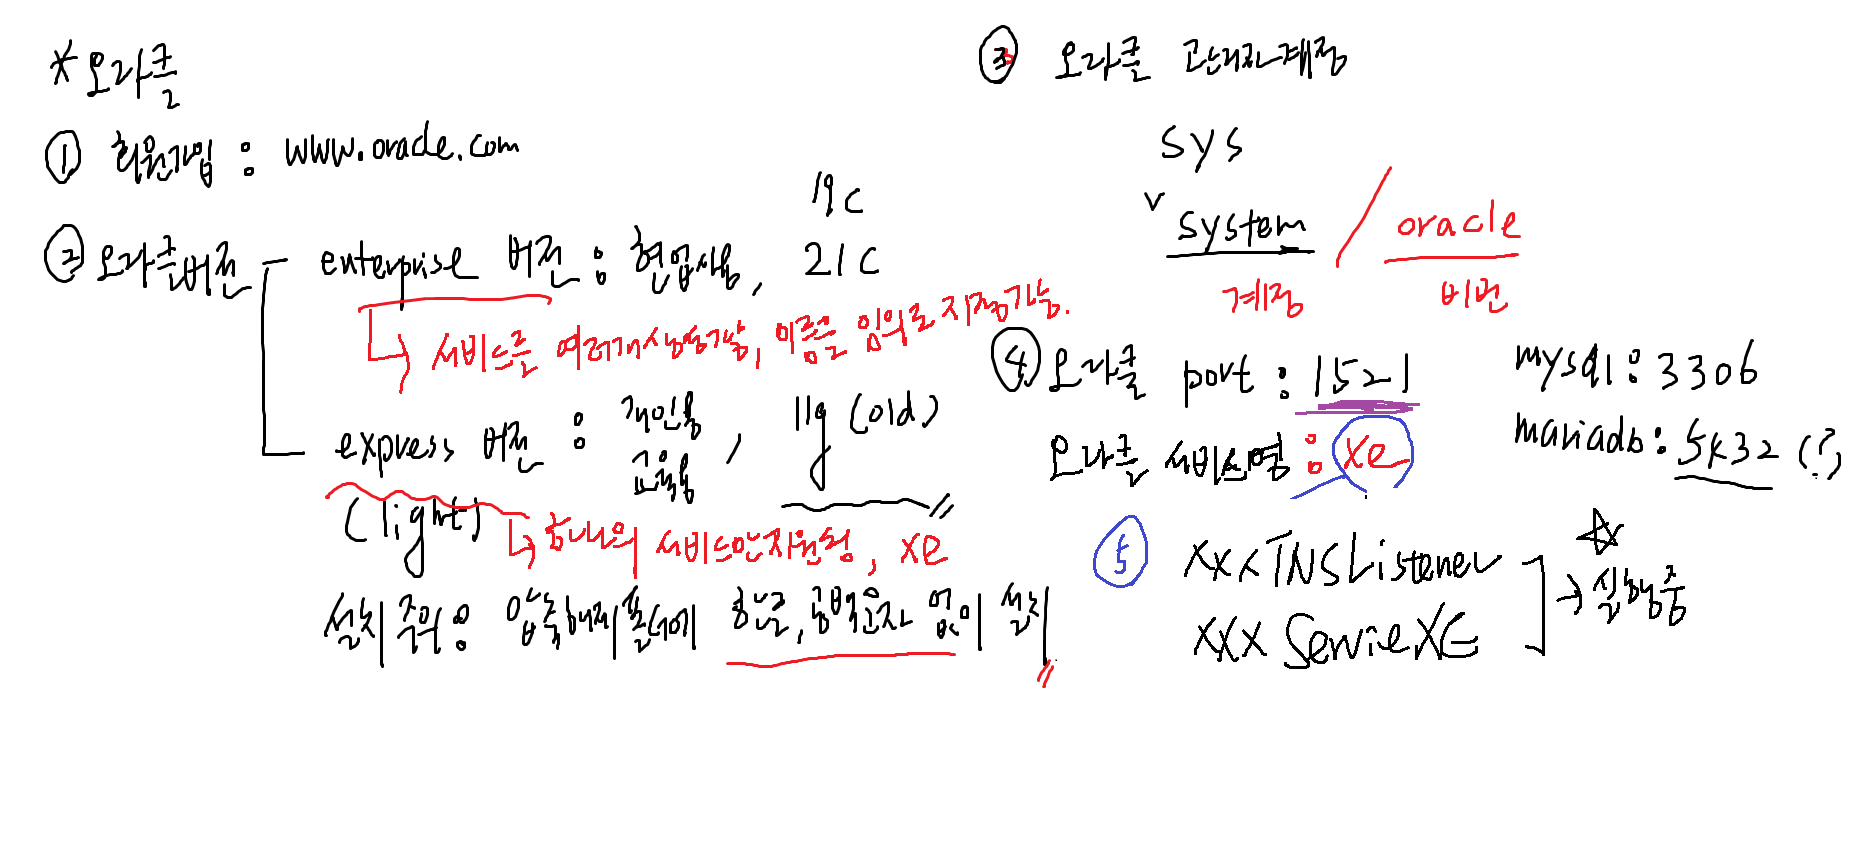 * 오라클
① 회원가입 : www.oracle.com
② 오라클버전
enterprise 버전 : 현업사용, 19c 21c
→ 서비스를 여러개생성가능, 이름을 임의로 지정가능.
express 버전 : 개인용 교육용, 11g (old)
(light)
→ 하나의 서비스만지원됨, xe
설치 주의 : 압축해제폴더에 한글, 공백문자 없이 설치
③ 오라클 관리자계정
sys
v system / oracle
계정 비번
④ 오라클 port : 1521
오라클 서비스명 : xe
mysql : 3306
mariadb : 5432 (?)
⑤ xxxTNSListener
xxx ServiceXE
→ ☆ 실행중